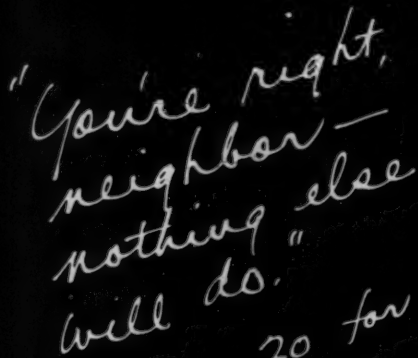 "You're right,
neighbor—
nothing else
will do."
20 for